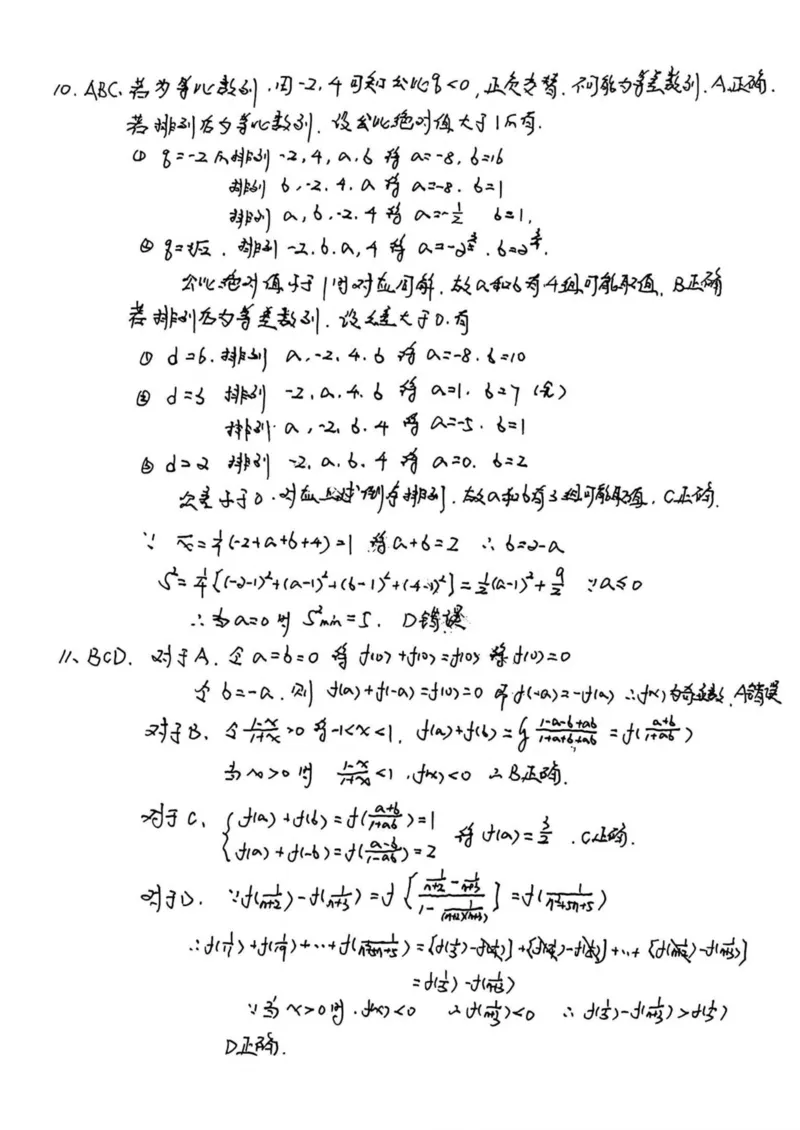 10. ABC. 若为等比数列,由-2,4可知公比q<0,正负交替,不可能为等差数列.A正确.
若排列后为等比数列,设公比绝对值大于1后有.
① q=-2 后排列 -2,4,a,b 得 a=-8, b=16
排列 b,-2,4,a 得 a=-8. b=1
排列 a,b,-2,4 得 a=-1/2 b=1,
排列 -2.b.a,4 得
公比绝对值小于1时对应同解,故a和b有4组可能取值,B正确
若排列后为等差数列,设公差大于0.有
① d=6.排列 a,-2,4,b 得 a=-8.b=10
② d=3 排列 -2,a,4,b 得 a=1. b=7 (舍)
排列 a,-2,b,4 得 a=-5. b=1
③ d=2 排列 -2,a,b,4 得 a=0. b=2
公差小于0.对应上述倒序排列,故a和b有3组可能取值,C正确.
∵ x̄=1/4(-2+a+b+4)=1 得a+b=2 ∴ b=2-a
S²=1/4[(-2-1)²+(a-1)²+(b-1)²+(4-1)²]=1/2(a-1)²+9/2 ∵a≤0
∴当a=0时 S²min=5. D错误
11. BCD. 对于A.令 a=b=0 得 f(0)+f(0)=f(0), 得f(0)=0
令 b=-a.则 f(a)+f(-a)=f(0)=0 即 f(-a)=-f(a) ∴f(x)为奇函数,A错误
对于B.令 (1-x)/(1+x)>0 得-1<x<1, f(a)+f(b)=lg (1-a-b+ab)/(1+a+b+ab) =f((a+b)/(1+ab))
当x>0时 (1-x)/(1+x)<1 ,f(x)<0 ∴B正确.
对于C. { f(a)+f(b)=f((a+b)/(1+ab))=1
f(a)+f(-b)=f((a-b)/(1-ab))=2 得 f(a)=3/2 .C正确.
对于D. ∵f(1/(n+2))-f(1/(n+3))=f[(1/(n+2)-1/(n+3))/(1-1/((n+2)(n+3)))]=f(1/(n²+5n+5))
∴f(1/11)+f(1/19)+…+f(1/(n²+5n+5))=[f(1/3)-f(1/4)]+[f(1/4)-f(1/5)]+…+[f(1/(n+2))-f(1/(n+3))]
=f(1/3)-f(1/(n+3))
∵当x>0时,f(x)<0 ∴f(1/(n+3))<0 ∴ f(1/3)-f(1/(n+3))>f(1/3)
D正确.